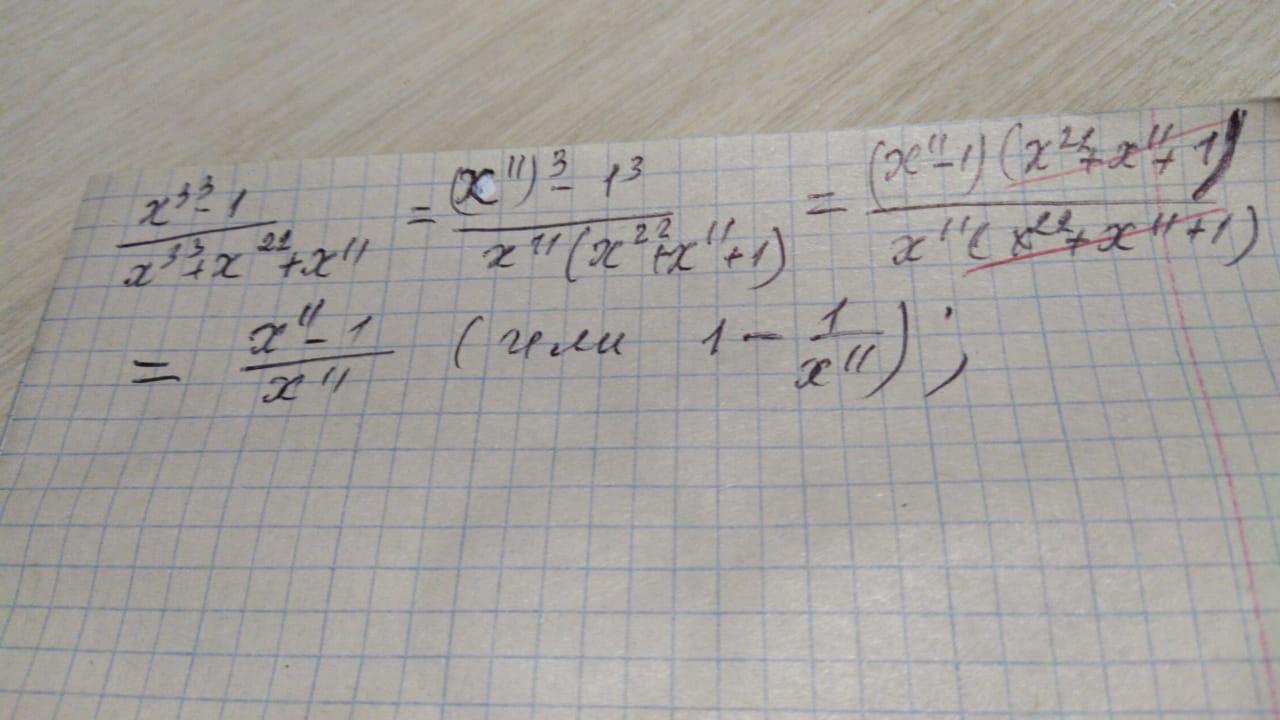 (x³³ - 1)/(x³³ + x²² + x¹¹) = ((x¹¹)³ - 1³)/(x¹¹(x²² + x¹¹ + 1)) = ((x¹¹ - 1)(x²² + x¹¹ + 1))/(x¹¹(x²² + x¹¹ + 1))
= (x¹¹ - 1)/x¹¹ (или 1 - 1/x¹¹);